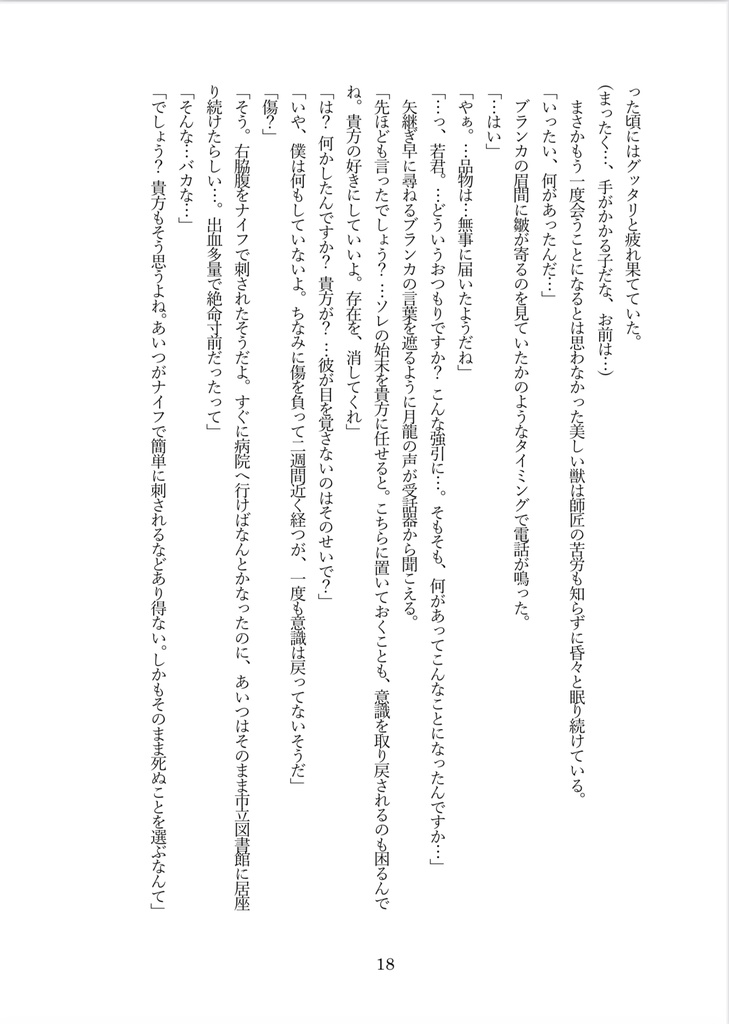 った頃にはグッタリと疲れ果てていた。
(まったく…、手がかかる子だな、お前は…)
まさかもう一度会うことになるとは思わなかった美しい獣は師匠の苦労も知らずに昏々と眠り続けている。
「いったい、何があったんだ…」
ブランカの眉間に皺が寄るのを見ていたかのようなタイミングで電話が鳴った。
「…はい」
「やぁ。…品物は…無事に届いたようだね」
「…っ、若君。…どういうおつもりですか? こんな強引に…。そもそも、何があってこんなことになったんですか…」
矢継ぎ早に尋ねるブランカの言葉を遮るように月龍の声が受話器から聞こえる。
「先ほども言ったでしょう? …ソレの始末を貴方に任せると。こちらに置いておくことも、意識を取り戻されるのも困るんで
ね。貴方の好きにしていいよ。存在を、消してくれ」
「は? 何かしたんですか? 貴方が? …彼が目を覚さないのはそのせいで?」
「いや、僕は何もしていないよ。ちなみに傷を負って二週間近く経つが、一度も意識は戻ってないそうだ」
「傷?」
「そう。右脇腹をナイフで刺されたそうだよ。すぐに病院へ行けばなんとかなったのに、あいつはそのまま市立図書館に居座
り続けたらしい…。出血多量で絶命寸前だったって」
「そんな…バカな…」
「でしょう? 貴方もそう思うよね。あいつがナイフで簡単に刺されるなどあり得ない。しかもそのまま死ぬことを選ぶなんて」
18